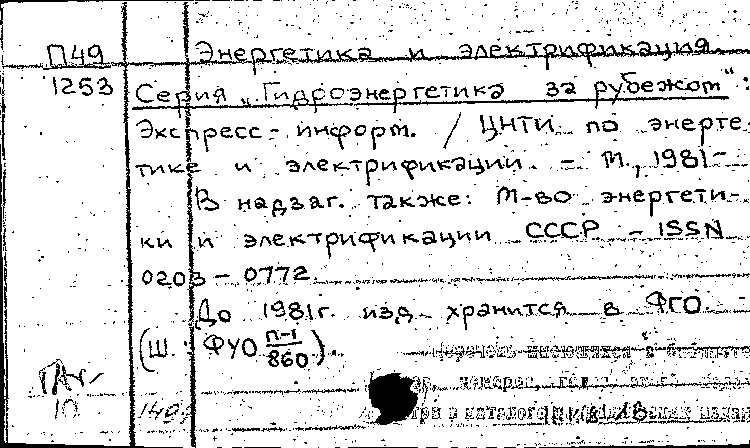 П49 Энергетика и электрификация.
1253 Серия „Гидроэнергетика за рубежом":
Экспресс-информ. / ЦНТИ по энерге-
тике и электрификации. – М., 1981–
В надзаг. также: М-во энергети-
ки и электрификации СССР – ISSN
0203–0772.
До 1981г. изд. хранится в ФГО
(Ш. ФУО П-1/860).
149